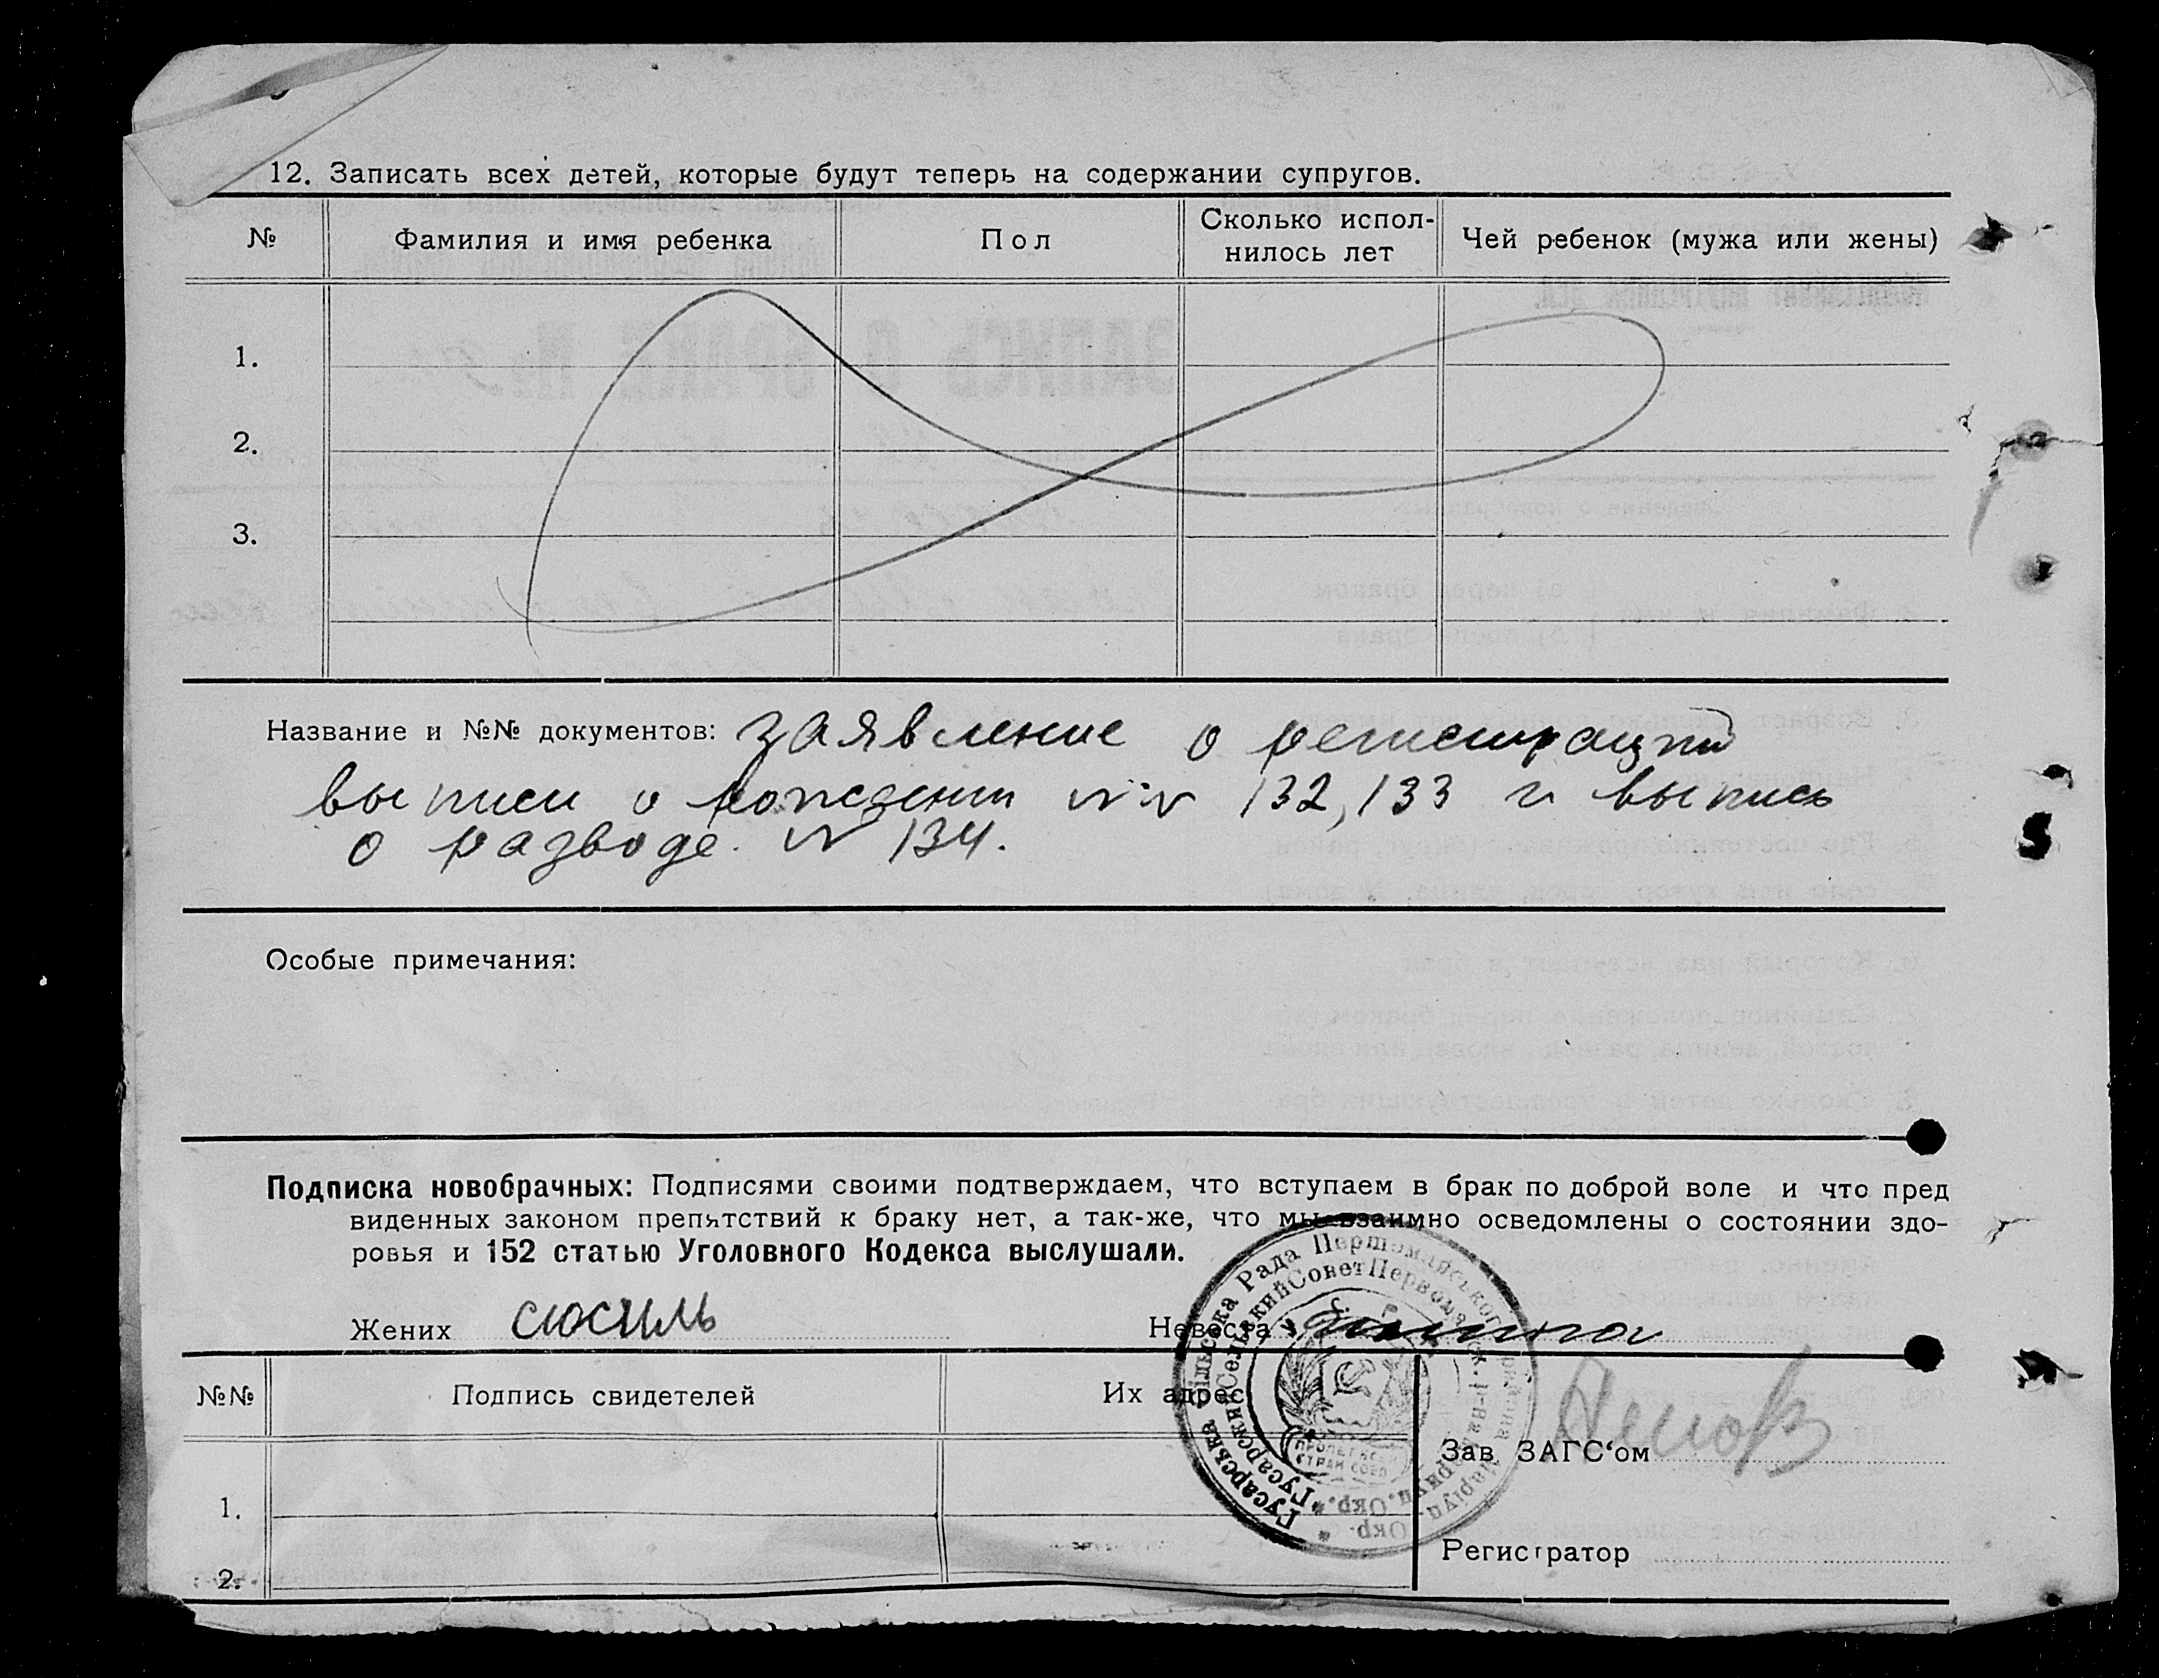 12. Записать всех детей, которые будут теперь на содержании супругов.
№ Фамилия и имя ребенка Пол Сколько испол-нилось лет Чей ребенок (мужа или жены)
1.
2.
3.
Название и №№ документов: заявление о регистрации
выписи о рождении №№ 132, 133 и выпись
о разводе. № 134.
Особые примечания:
Подписка новобрачных: Подписями своими подтверждаем, что вступаем в брак по доброй воле и что пред
виденных законом препятствий к браку нет, а так-же, что мы взаимно осведомлены о состоянии здо-
ровья и 152 статью Уголовного Кодекса выслушали.
Жених сюсиль
Невеста
№№ Подпись свидетелей Их адрес
Зав ЗАГС‘ом
1.
Регистратор
2.
Гусарська Сільсська Рада Першомайського району Маріуп. Окр.
Гусарский Сельский Совет Первомайск. р-на Мариуп. Окр.